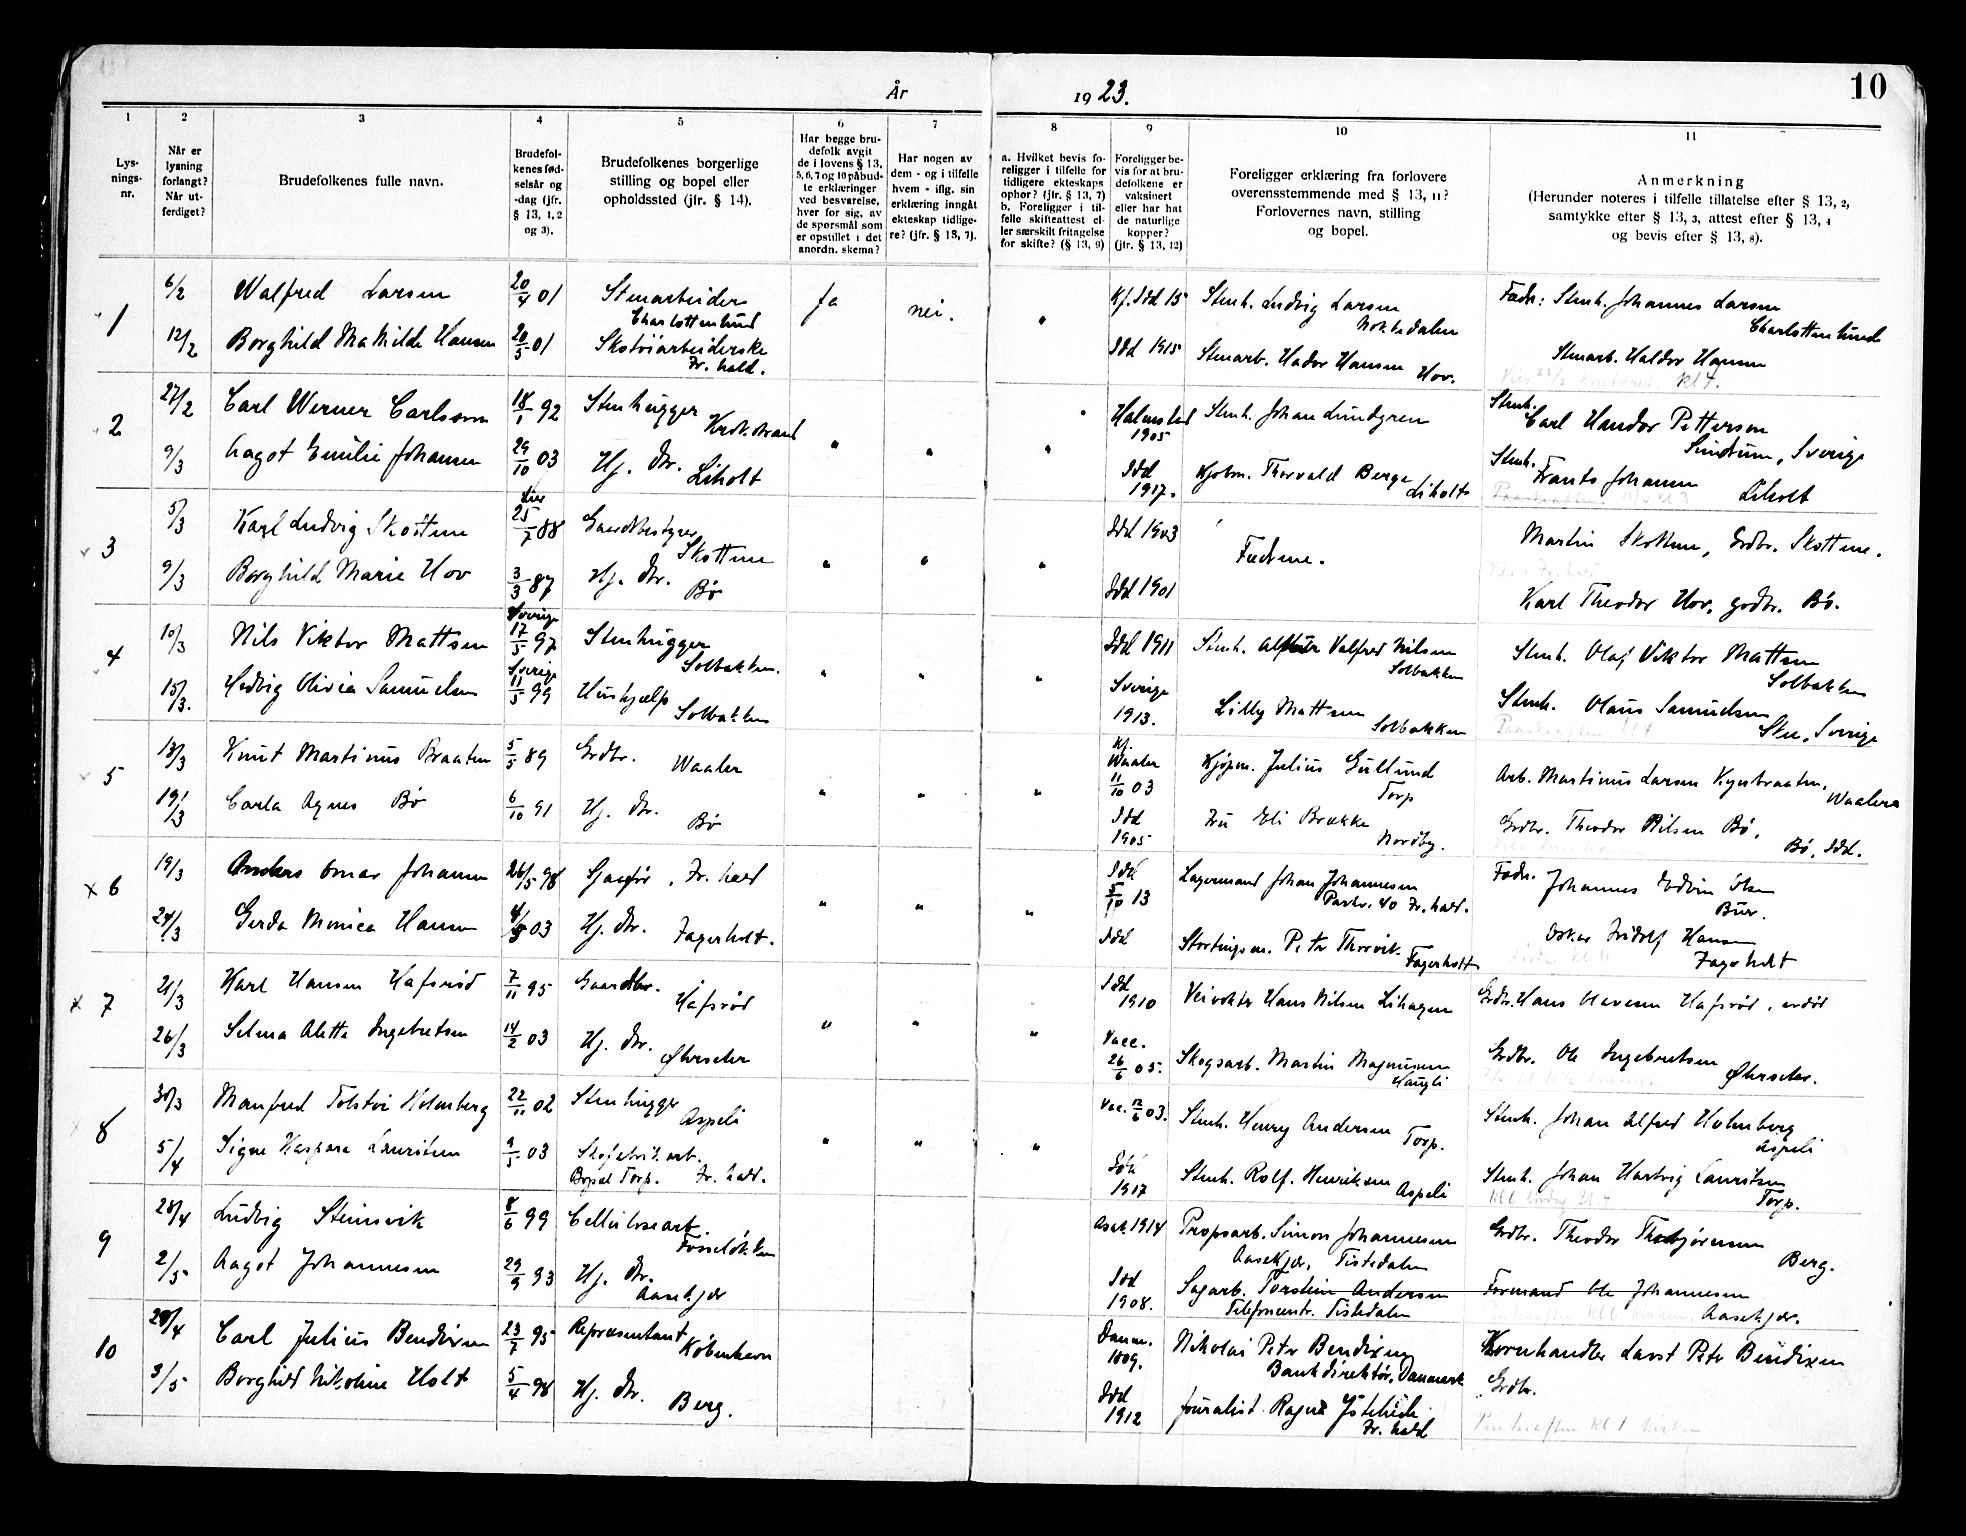 År 1923.
10
1 2 3 4 5 6 7 8 9 10 11
Lysningsnr.
Når er lysning forlangt? Når utferdiget?
Brudefolkenes fulle navn.
Brudefolkenes fødselsår og -dag (jfr. § 13, 1, 2 og 3).
Brudefolkenes borgerlige stilling og bopel eller opholdssted (jfr. § 14).
Har begge brudefolk avgit de i lovens § 13, 5, 6, 7 og 10 påbudte erklæringer ved besvarelse, hver for sig, av de spørsmål som er opstillet i det anordn. skema?
Har nogen av dem - og i tilfelle hvem - iflg. sin erklæring inngåt ekteskap tidligere? (jfr. § 13, 7).
a. Hvilket bevis foreligger i tilfelle for tidligere ekteskaps ophør? (jfr. § 13, 7) b. Foreligger i tilfelle skifteattest eller særskilt fritagelse for skifte? (§ 13, 9)
Foreligger bevis for at brudefolkene er vaksinert eller har hat de naturlige kopper? (jfr. § 13, 12)
Foreligger erklæring fra forlovere overensstemmende med § 13, 11? Forlovernes navn, stilling og bopel.
Anmerkning (Herunder noteres i tilfelle tillatelse efter § 13, 2, samtykke efter § 13, 3, attest efter § 13, 4 og bevis efter § 13, 8).
1 6/2 Walfred Larsen 20/4 01 Stenarbeider Charlottenlund ja nei. " Kf. Idd 15 Stenh. Ludvig Larsen Fadr: Stenh. Johannes Larsen Charlottenlund
12/2 Borghild Mathilde Hansen 20/5 01 Skotøiarbeiderske Fr.hald. Idd 1915 Stenarb. Hador Hansen Hov. Stenarb. Haldor Hansen kl 4.
2 27/2 Carl Werner Carlsson 18/1 92 Stenhugger Krokstrand " " " Halmstad 1905 Stenh. Johan Lundgren Stenh. Carl Handor Petterson Sverige
9/3 Aagot Emilie Johansen 29/10 03 Hj. dtr. Liholt Idd 1917. Kjøbm. Thorvald Berge Liholt Stenh. Frants Johansen Liholt
3 5/3 Karl Ludvig Skotten 25/7 88 Gaardbestyrer Skottene " " " Idd 1903 Fædrene. Martin Skotten, Grdbr. Skottene.
9/3 Borghild Marie Hov 3/3 87 Hj. dtr. Bø Idd 1901 Karl Theodor Hov, grdbr. Bø.
4 10/3 Nils Viktor Mattsen Sverige 17/5 97 Stenhugger Solbakken. " " " Idd 1911 Stenh. Valfred Nilsen Solbakken Stenh. Olaf Viktor Mattsen Solbakken
15/3. Hedvig Olivia Samuelsen Sverige 11/5 99 Hushjælp Solbakken Sverige 1913. Lilly Mattsen Solbakken Stenh. Olaus Samuelsen Skee, Sverige
5 13/3 Knut Martinus Braaten 5/5 89 Grdbr. Waaler " " " Kf. Waaler 11/10 03 Kjøpm. Julius Gullund Torp Arb. Martinus Larsen Waaler
19/3 Carla Agnes Bø 6/10 91 Hj. dtr. Bø Idd 1905 Fru Eli Brække Nordby. Grdbr. Theodor Nilsen Bø, Bø, Idd.
x 6 19/3 Anders Omar Johansen 26/5 98 Fr.hald " " " Idd 5/10 13 Lagermand Johan Johannesen 40 Fr.hald. Fadr. Johannes Edvin Olsen
24/3 Gerda Monica Hansen 03 Hj. dtr. Fagerholt. Idd Stortingsm. Petr Thorvik Fagerholt Oskar Fridolf Hansen Fagerholt
x 7 21/3 Karl Hansen Hafsrød 7/11 95 Gaardbr. Hafsrød " " " Idd 1910 Veivokter Hans Nilsen Lihagen Grdbr. Hans Hansen Hafsrød, er død
26/3 Selma Aletta Ingebretsen 14/2 03 Hj. dtr. Øhrseter Vacc. 26/6 05. Skogsarb. Martin Magnusen Haugli Grdbr. Ole Ingebretsen Øhrseter.
8 30/3 Manfred Tolstoi Holmberg 22/11 02 Stenhugger Aspeli " " " Vac. 12/6 03. Stenh. Henry Andersen Torp. Stenh. Johan Alfred Holmberg Aspeli
5/4 Signe Kaspara Lauritsen 9/5 03 Skofabrikarb. Bopæl Torp. Fr.hald. Idd 1917 Stenh. Rolf. Henriksen Aspeli Stenh. Johan Hartvig Lauritsen Torp.
9 28/4 Ludvig Steinsvik 8/6 99 Cellulosearb. Fosseløkken Asak 1914 Propsarb. Simon Johannesen Aasekjær, Tistedalen Grdbr. Theodor Thorbjørnsen Berg.
2/5 Aagot Johannesen 29/9 93 Hj. dtr. Aasekjær Idd 1908. Sagarb. Torstein Andersen Telefoncentr. Tistedalen Formand Ole Johannesen Aasekjær.
10 28/4 Carl Julius Bendixen 23/7 95 Repræsentant København Danm. 1909. Nikolai Petr Bendixen Bankdirektør, Danmark Kornhandler Petr Bendixen
3/5 Borghild Nikoline Holt 5/4 98 Hj. dtr. Berg. Idd 1912 Journalist Fr.hald Grdbr.